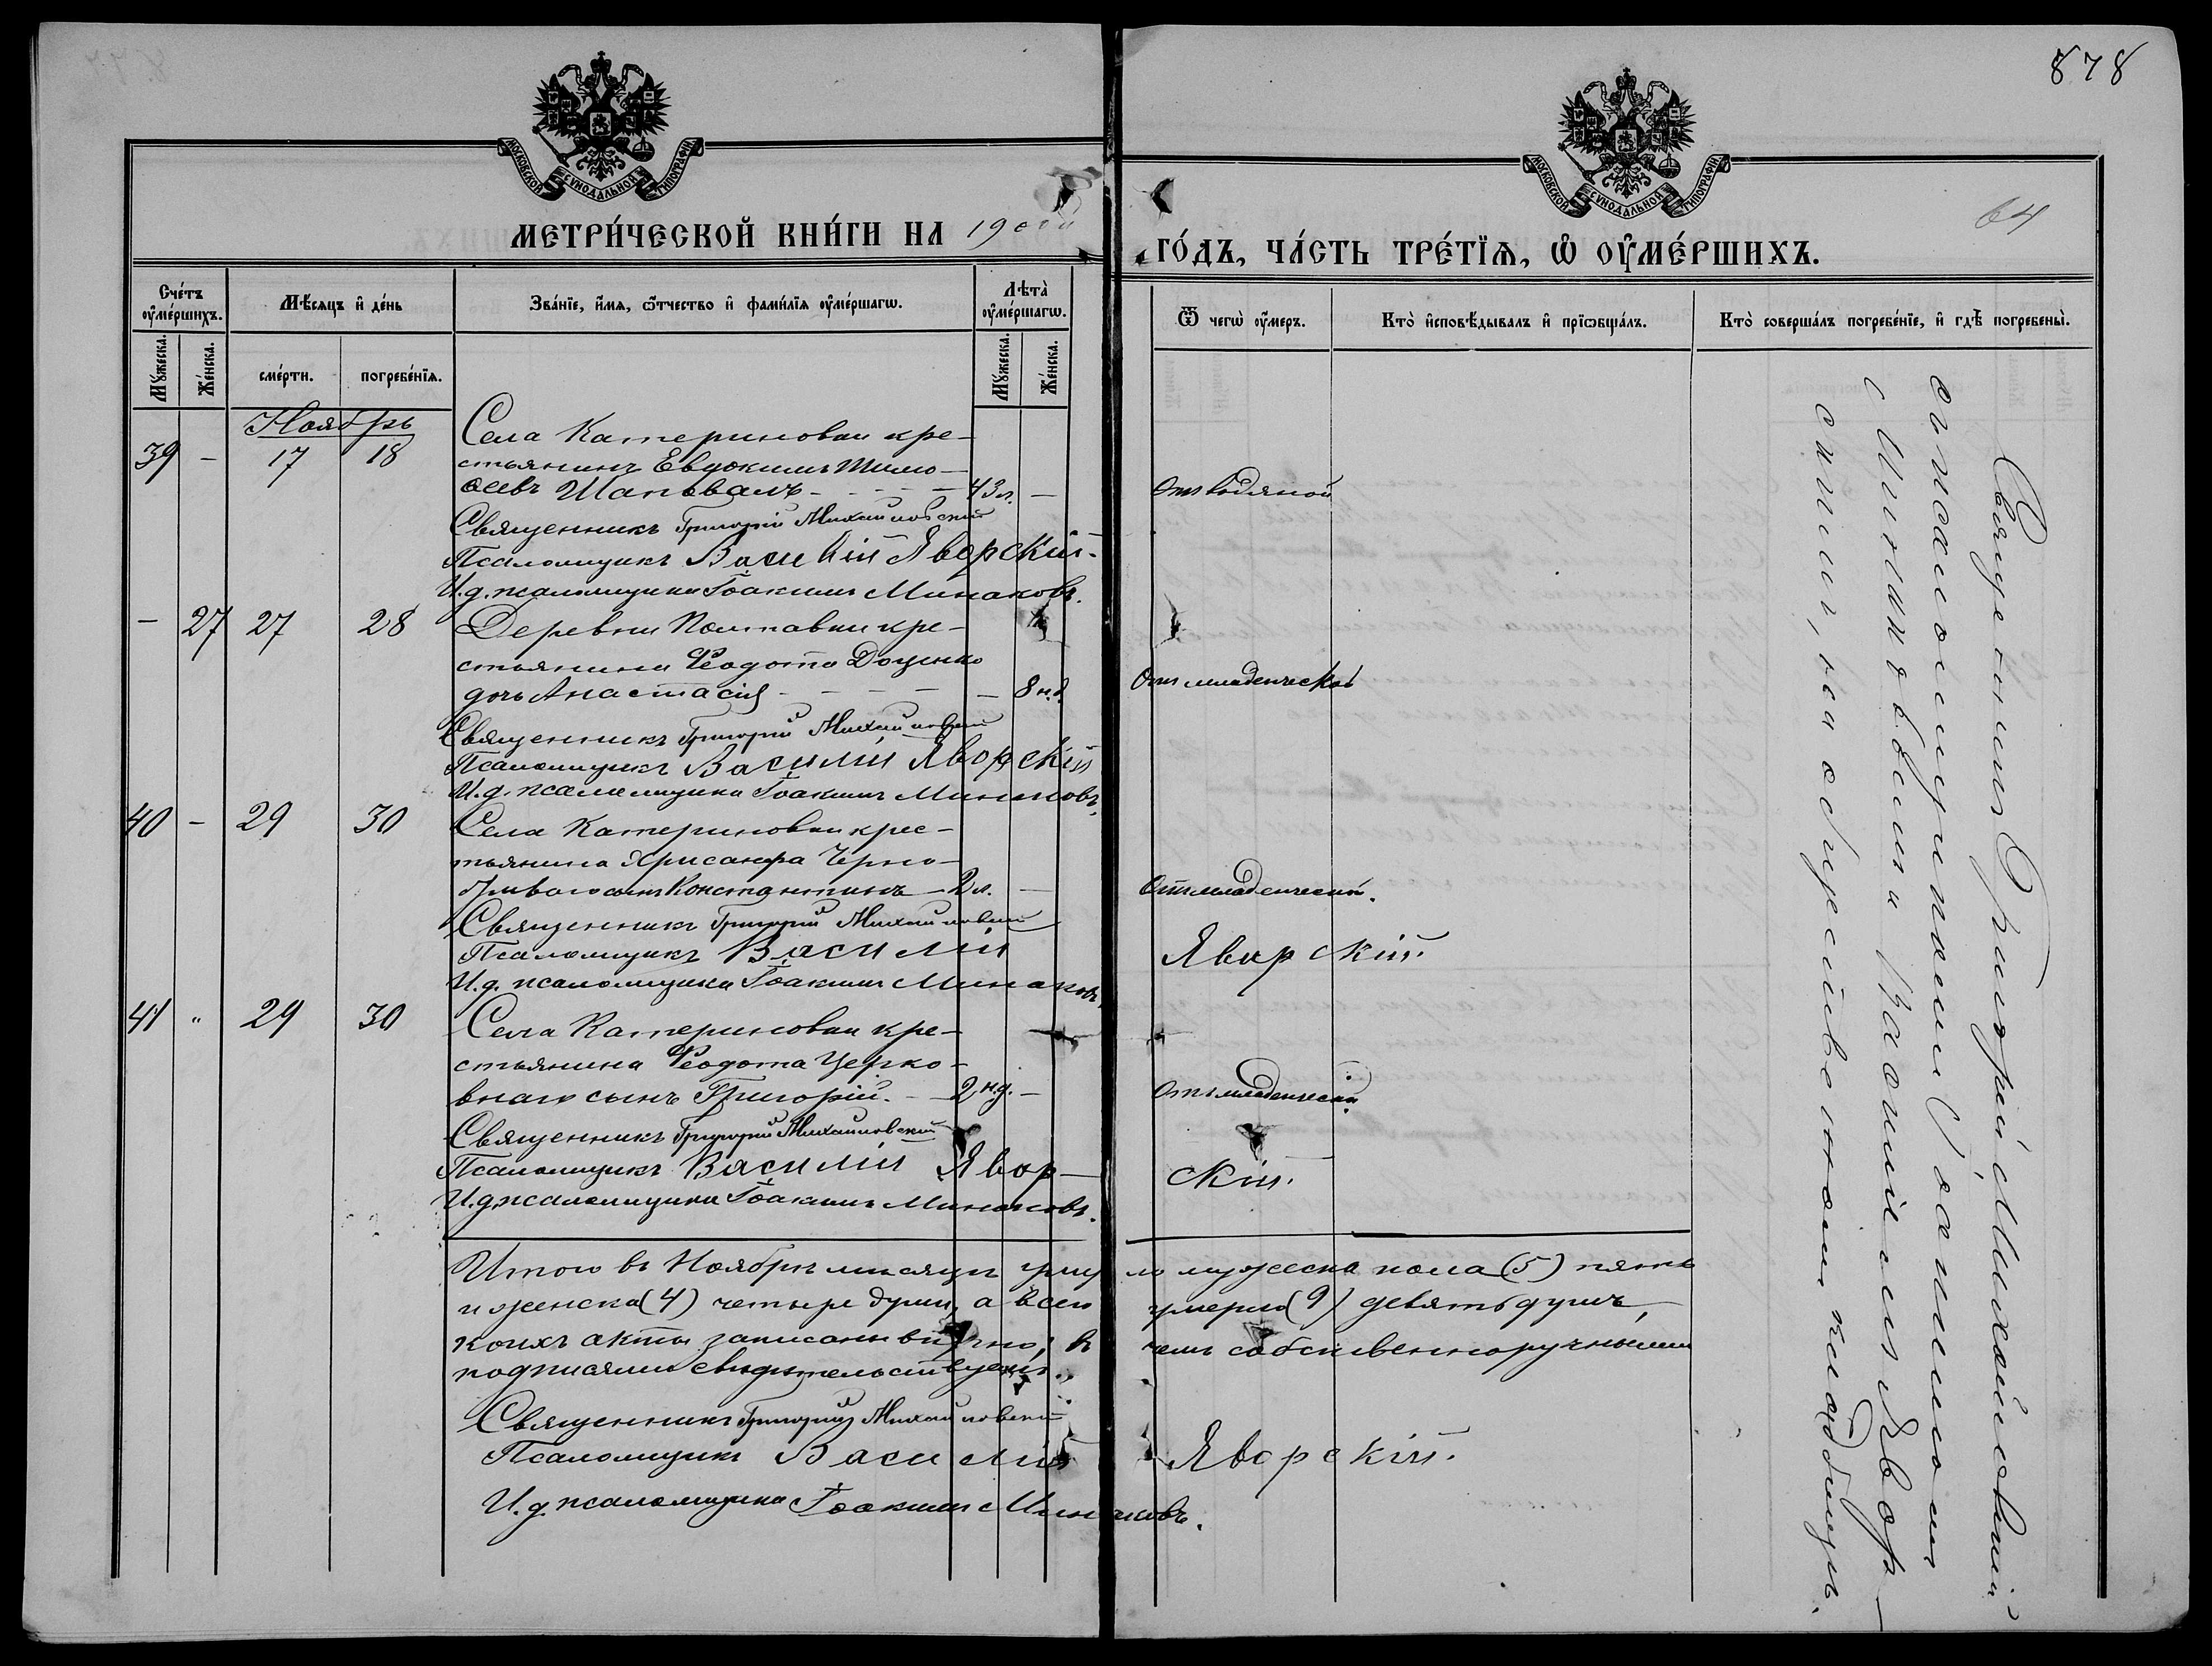 878
64
МОСКОВСКОЙ СѴНОДАЛЬНОЙ ТИПОГРАФІИ
МОСКОВСКОЙ СѴНОДАЛЬНОЙ ТИПОГРАФІИ
МЕТРИ́ЧЕСКОЙ КНИ́ГИ НА 19
ГО́ДЪ, ЧА́СТЬ ТРЕ́ТЇѦ, Ѡ҆ ОУ҆МЕ́РШИХЪ.
Сче́тъ оу҆ме́ршихъ.
Мѣ́сяцъ и҆ де́нь
Зва́нїе, и҆́мѧ, ѻ҆́тчество и҆ фами́лїѧ оу҆ме́ршагѡ.
Лѣта̀ оу҆ме́ршагѡ.
Ѿ чегѡ̀ оу҆́меръ.
Кто̀ и҆сповѣ́дывалъ и҆ прїѡбща́лъ.
Кто̀ соверша́лъ погребе́нїе, и҆ гдѣ̀ погребены̀.
Мꙋ́жеска.
Же́нска.
сме́рти.
погребе́нїѧ.
Мꙋ́жеска.
Же́нска.
Ноябрь
39 - 17 18 Села Катериновки кре-
стьянинъ Евдокимъ Тимо-
ѳеевъ Шаповалъ - 43 л. - Отъ водяной
Священникъ Григорій Михайловскій
Псаломщикъ Василій Яворскій.
И.д. псаломщика Іоакимъ Минаковъ.
- 27 27 28 Деревни Полтавки кре-
стьянина Ѳеодота Доценко
дочь Анастасія - 8 н.д. Отъ младенческой
Священникъ Григорій Михайловскій
Псаломщикъ Василій Яворскій
И.д. псаломщика Іоакимъ Минаковъ.
40 - 29 30 Села Катериновки крес-
тьянина Хрисанфа Черно-
гриваго сынъ Константинъ - 2 л. - Отъ младенческой.
Священникъ Григорій Михайловскій
Псаломщикъ Василій Яворскій.
И.д. псаломщика Іоакимъ Минаковъ
41 " 29 30 Села Катериновки кре-
стьянина Ѳеодота Церко-
внаго сынъ Григорій. - 2 н.д. - Отъ младенческой.
Священникъ Григорій Михайловскій
Псаломщикъ Василій Яворскій.
И.д. псаломщика Іоакимъ Минаковъ.
Итого въ Ноябрѣ мѣсяцѣ умерло мужеска пола (5) пять
и женска (4) четыре души, а всего умерло (9) девять душъ,
коихъ акты записаны вѣрно, въ чемъ собственноручными
подписями свидѣтельствуемъ.
Священникъ Григорій Михайловскій
Псаломщикъ Василій Яворскій.
И.д. псаломщика Іоакимъ Минаковъ.
Священникъ Григорій Михайловскій
съ псаломщиками Іоакимомъ
Минаковымъ и Василіемъ Явор-
скимъ, на общественномъ кладбищѣ.